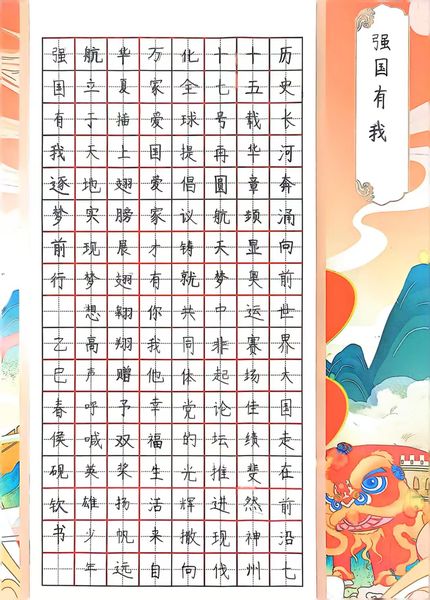 强国有我
历史长河奔涌向前世界大国走在前沿七
十五载华章频显奥运赛场佳绩斐然神州
十七号再圆航天梦中非起论坛推进现伐
化全球提倡议铸就共同体党的光辉撒向
万家爱国爱家才有你我他幸福生活来自
华夏插上翅膀晨翅翱翔赠予双桨扬帆远
航立于天地实现梦想高声呼喊英雄少年
强国有我逐梦前行 乙巳春侯砚钦书